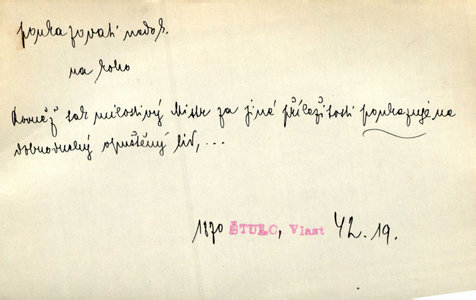 poukazovati nedok.
na koho
Rovněž tak milostivý Mistr za jiné příležitosti poukazuje na
dobrodušný opuštěný lid, ...
1870 ŠTULC, Vlast 42. 19.